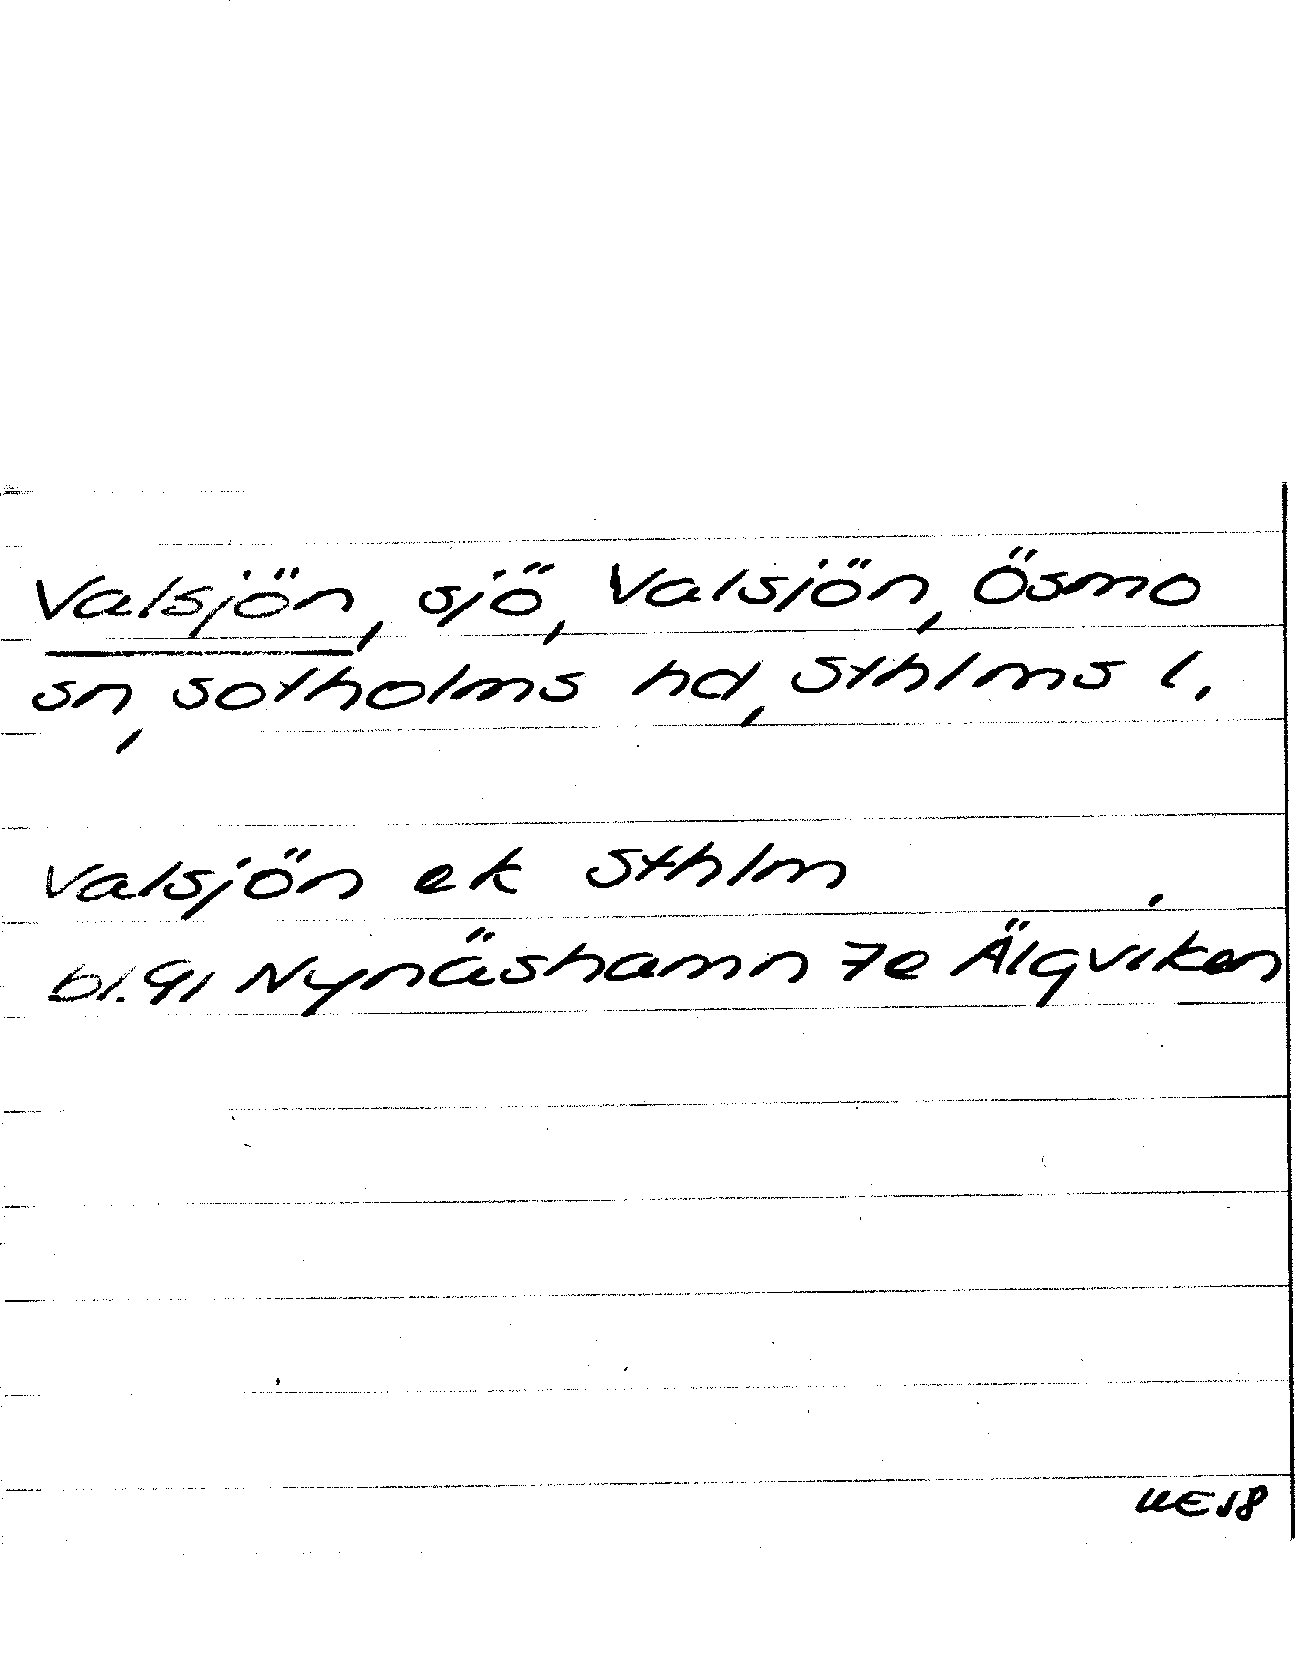 Valsjön, sjö, Valsjön, Ösmo
sn, Sotholms hd, Sthlms l.
Valsjön ek Sthlm
bl. 91 Nynäshamn 7e Älgviken